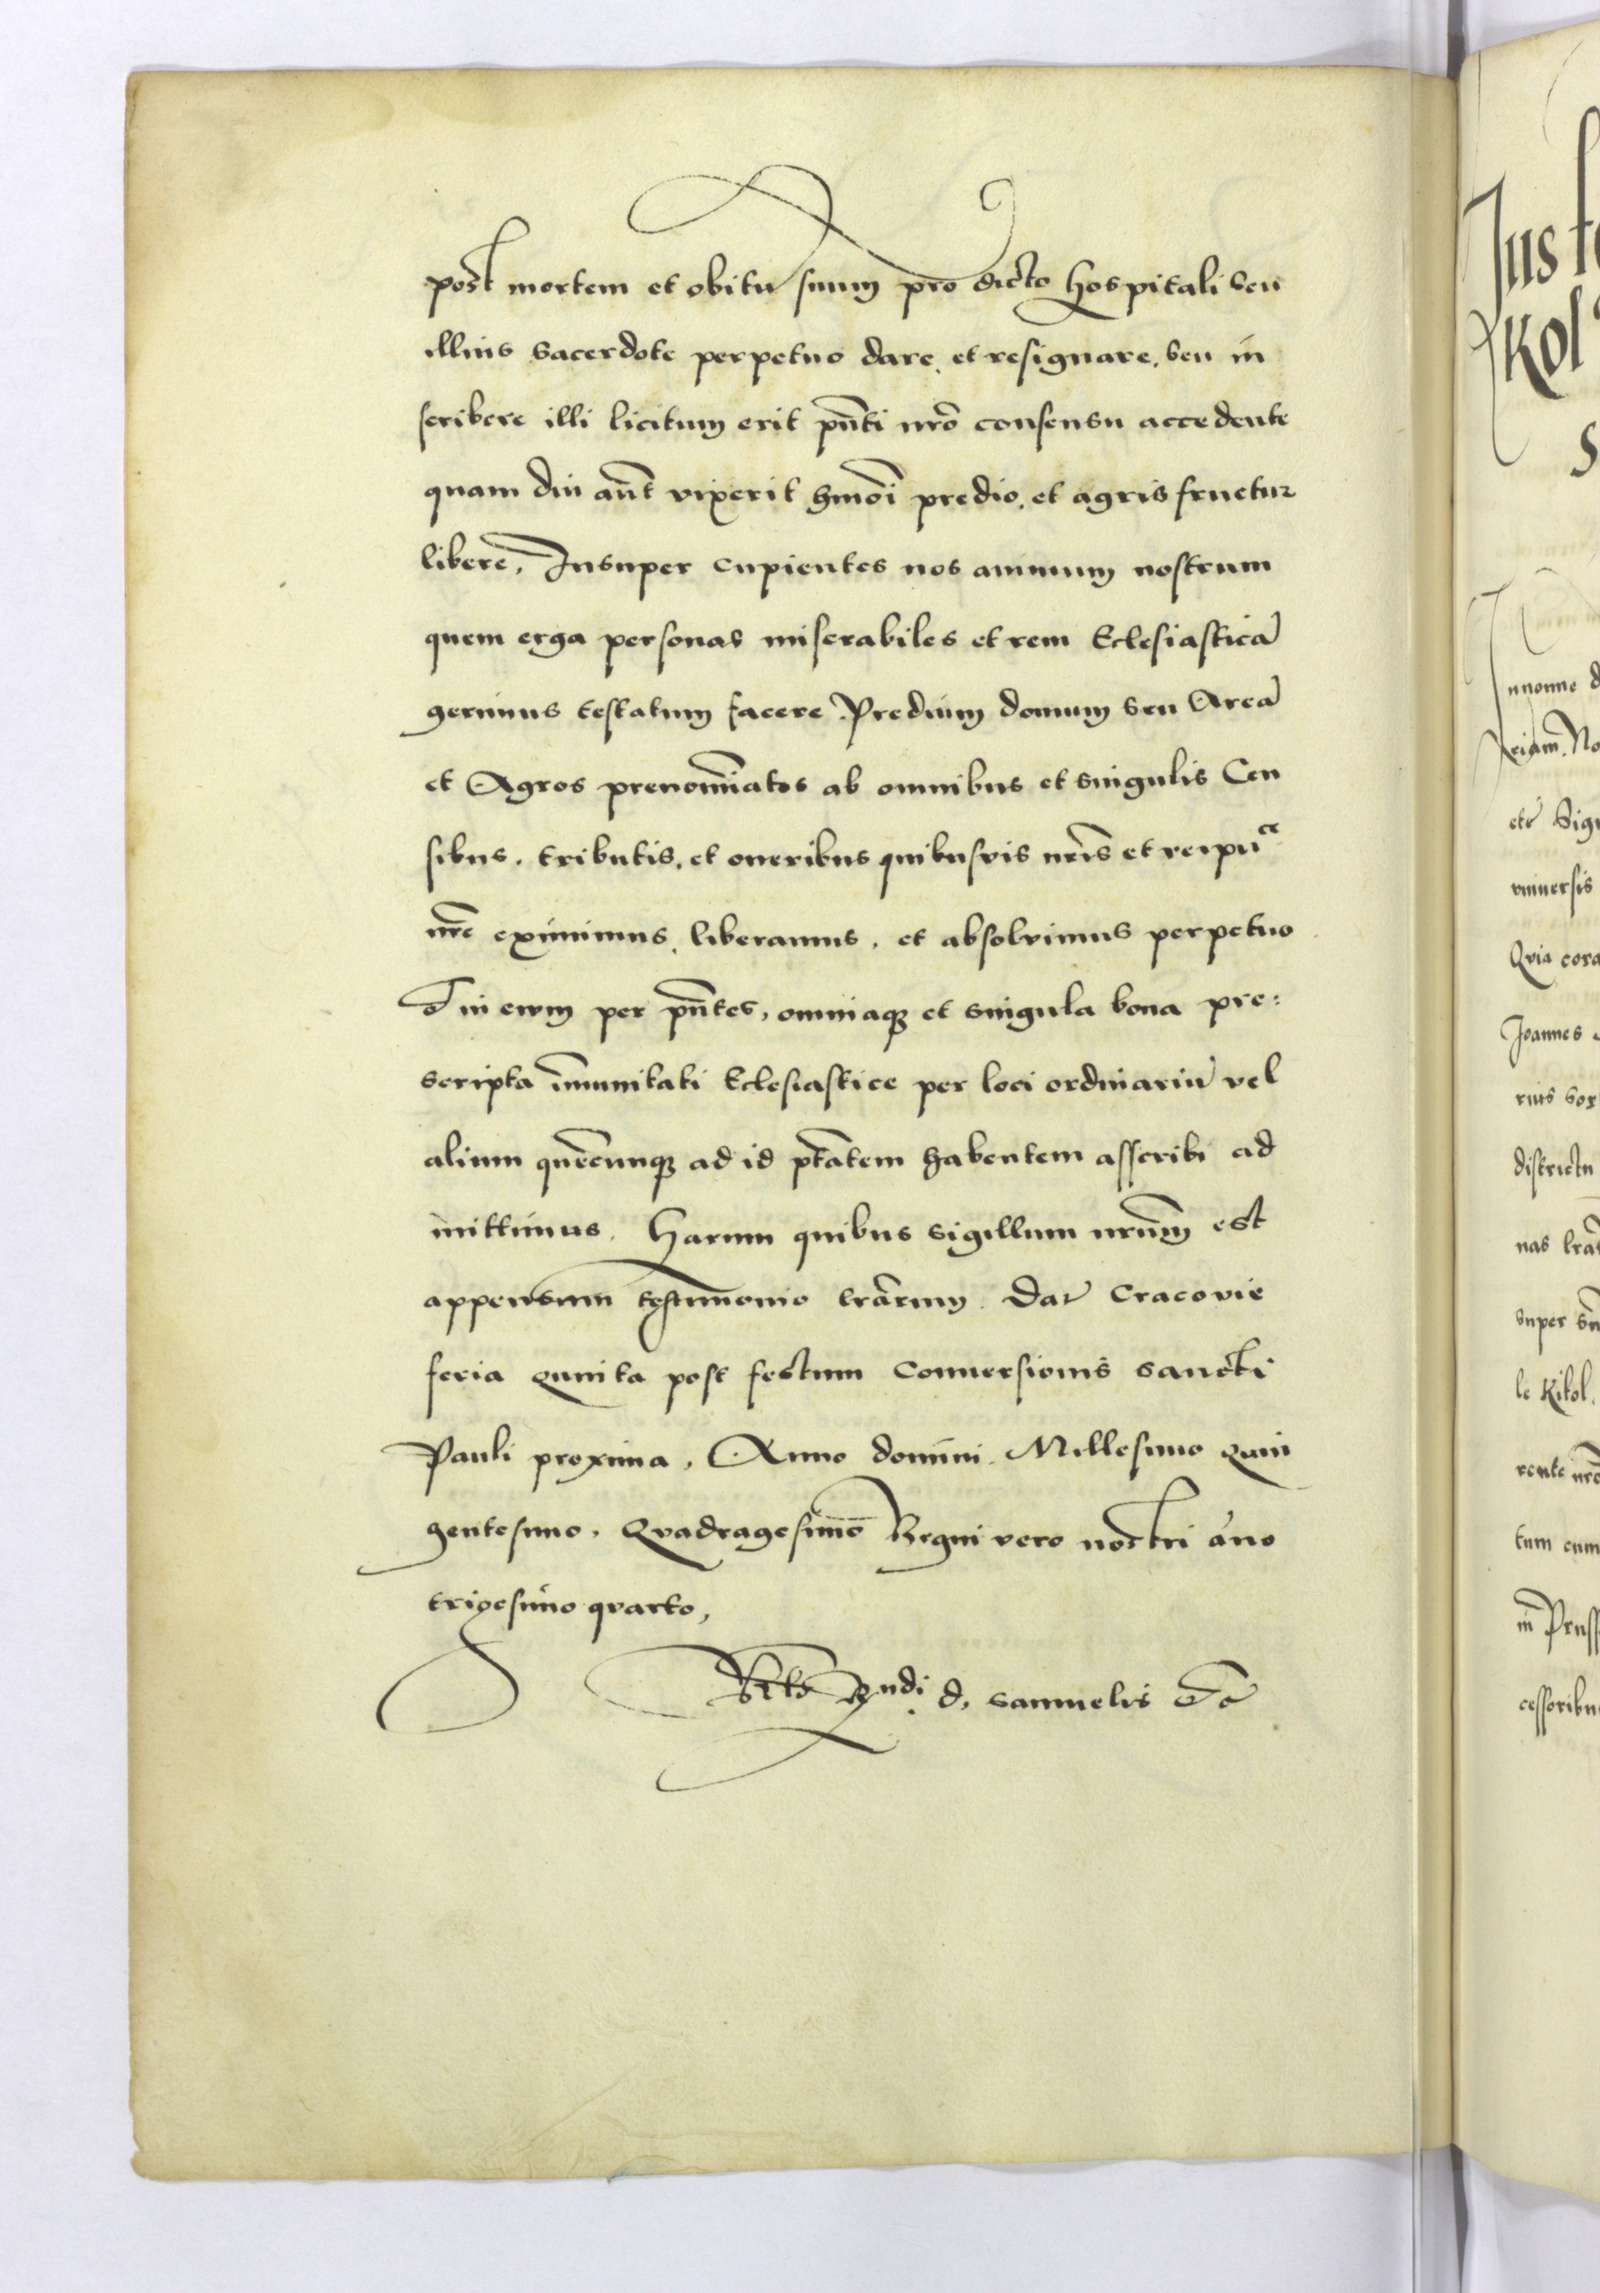 post mortem et obitū suum pro dicto Hospitali seu
illius sacerdote perpetuo dare, et resignare, seu in
scribere illi licitum erit pn̄ti nr̄o consensu accedente
quam diu aūt vixerit hmōi predio, et agris fruetur
libere, Insuper cupientes nos animum nostrum
quem erga personas miserabiles et rem Eclesiasticā
gerimus testatum facere Predium domum seu Areā
et Agros prenomīatos ab omnibus et singulis Cen
sibus, tributis, et oneribus quibusvis nr̄is et reipuᶜᵉ
nr̄e eximimus, liberamus, et absolvimus perpetuo
in evum per pn̄tes, omniaqꝫ et singula bona pre:
scripta īmunitati Eclesiastice per loci ordinariū vel
alium quēcunqꝫ ad id ptātem habentem asscribi ad
mittimus. Harum quibus sigillum nrūm est
appensum testimonio lrārum. Dat Cracovie
feria quinta post festum Conversionis sancti
Pauli proxima, Anno domini Millesimo Quin
gentesimo, Quadragesimo Regni vero nostri āno
trigesimo quarto,
Rtō Rndi d, samuelis
Jus
Kol
S
Innomine d
riam. No
etc̄ Sigi
vniversis
Qvia cora
Joannes
rius
districtu
nas lrā
super
le Kitol.
rente nr̄o
tum cum
in Pruss
cessoribu